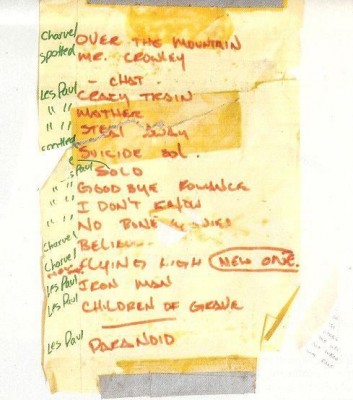 Charvel OVER THE MOUNTAIN
spotted MR. CROWLEY
- CHAT.
Les Paul CRAZY TRAIN
" " MOTHER
" " STEAL AWAY
spotted SUICIDE SOL.
Paul SOLO
" " GOODBYE ROMANCE
" " I DON'T KNOW
" " NO BONE MOVIES
Charvel BELIEV
Charvel FLYING HIGH NEW ONE.
Les Paul IRON MAN
Les Paul CHILDREN OF GRAVE
Les Paul PARANOID